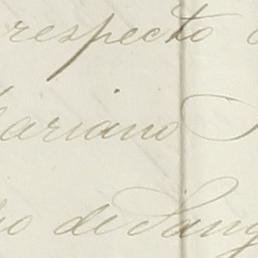 respecto
Mariano
de Sang